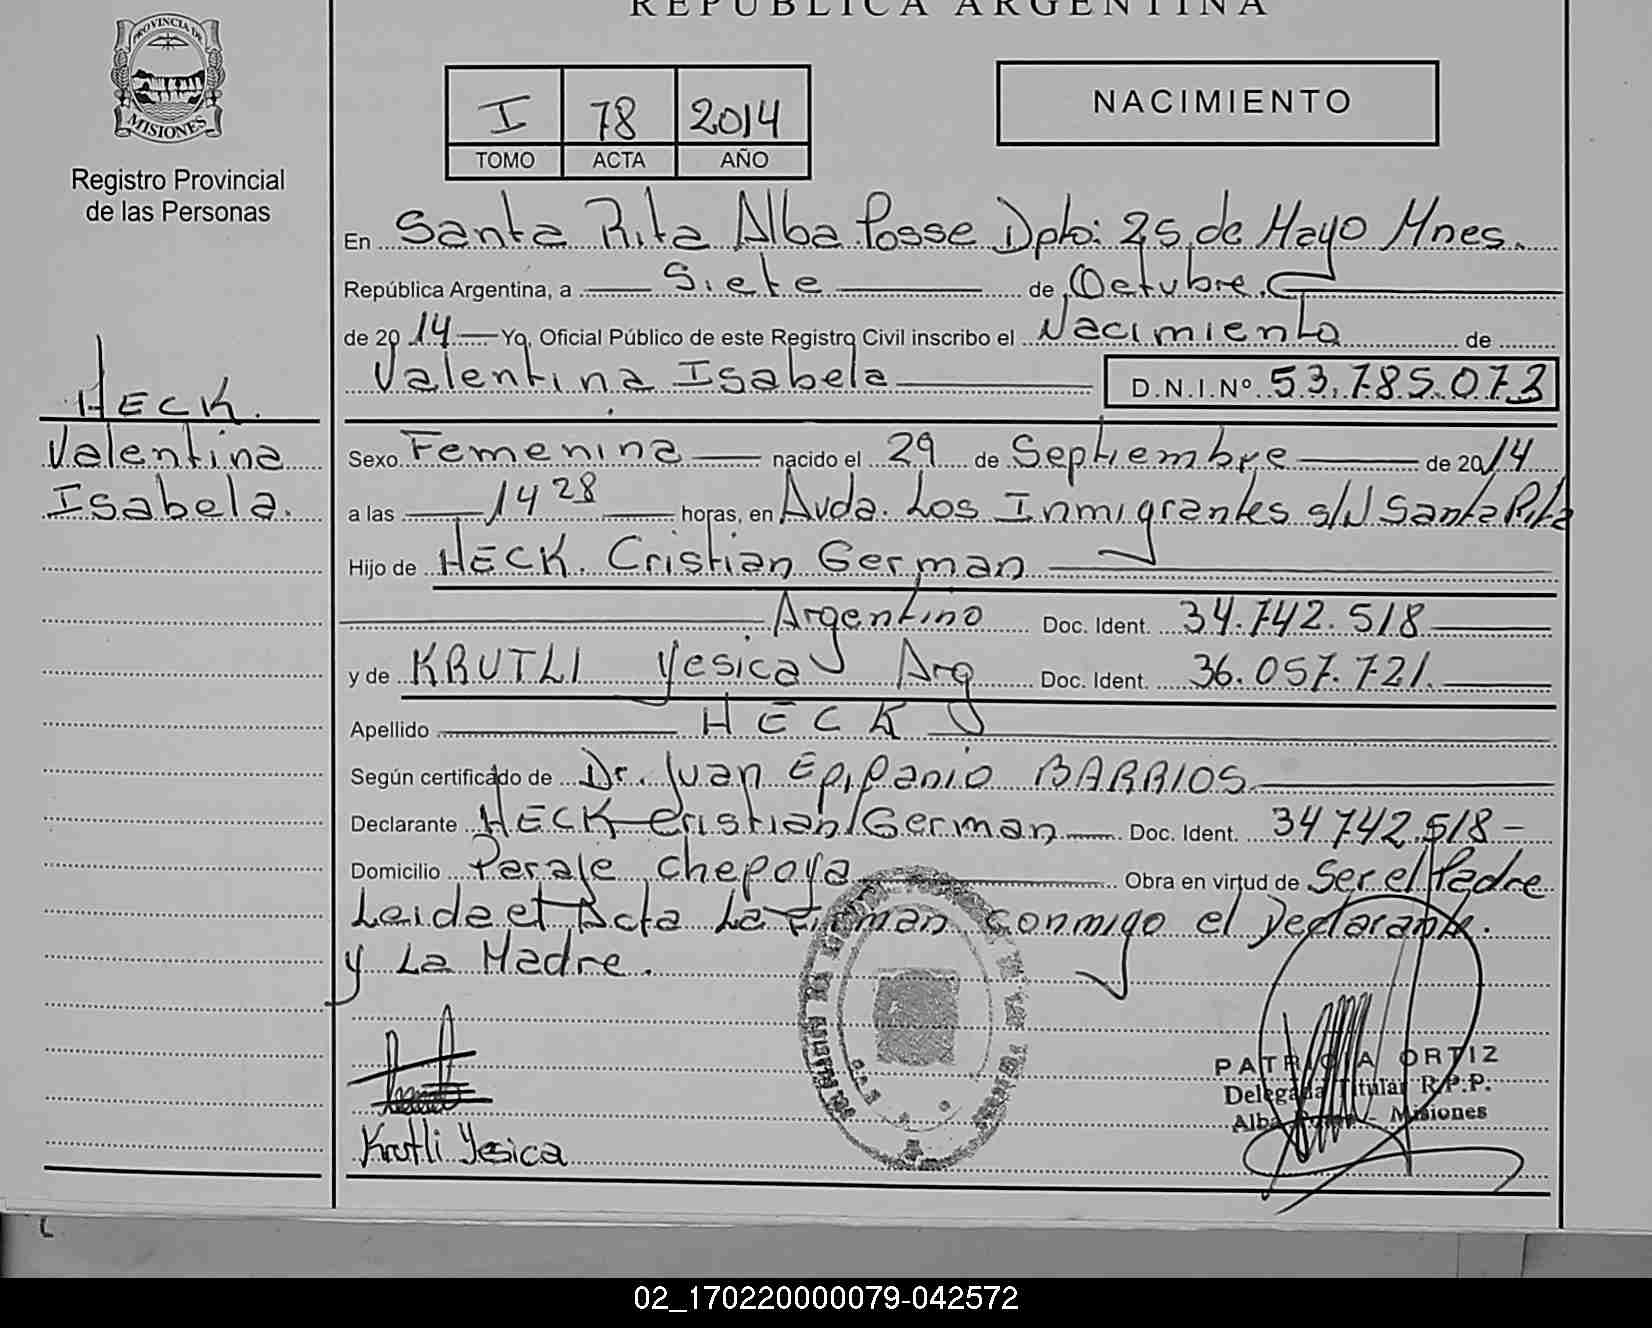 REPÚBLICA ARGENTINA
PROVINCIA DE
MISIONES
Registro Provincial
de las Personas
I 78 2014
TOMO ACTA AÑO
NACIMIENTO
En Santa Rita Alba Posse Dpto: 25 de Mayo Mnes.
República Argentina, a Siete de Octubre.
de 2014 Yo, Oficial Público de este Registro Civil inscribo el Nacimiento de
Valentina Isabela D.N.I.Nº 53.785.073
HECK.
Valentina
Isabela.
Sexo Femenina nacido el 29 de Septiembre de 2014
a las 14 28 horas, en Avda. Los Inmigrantes s/N Santa Rita
Hijo de HECK. Cristian German
Argentino Doc. Ident. 34.742.518
y de KRUTLI Yesica Arg Doc. Ident. 36.057.721.
Apellido HECK
Según certificado de Dr. Juan Epifanio BARRIOS
Declarante HECK Cristian German Doc. Ident. 34.742.518-
Domicilio Paraje Chepoya Obra en virtud de Ser el Padre
Leida el Acta La Firman conmigo el Declarante.
y La Madre.
PATRICIA ORTIZ
Delegada Titular R.P.P.
Alba Posse - Misiones
Krutli Yesica
02_170220000079-042572